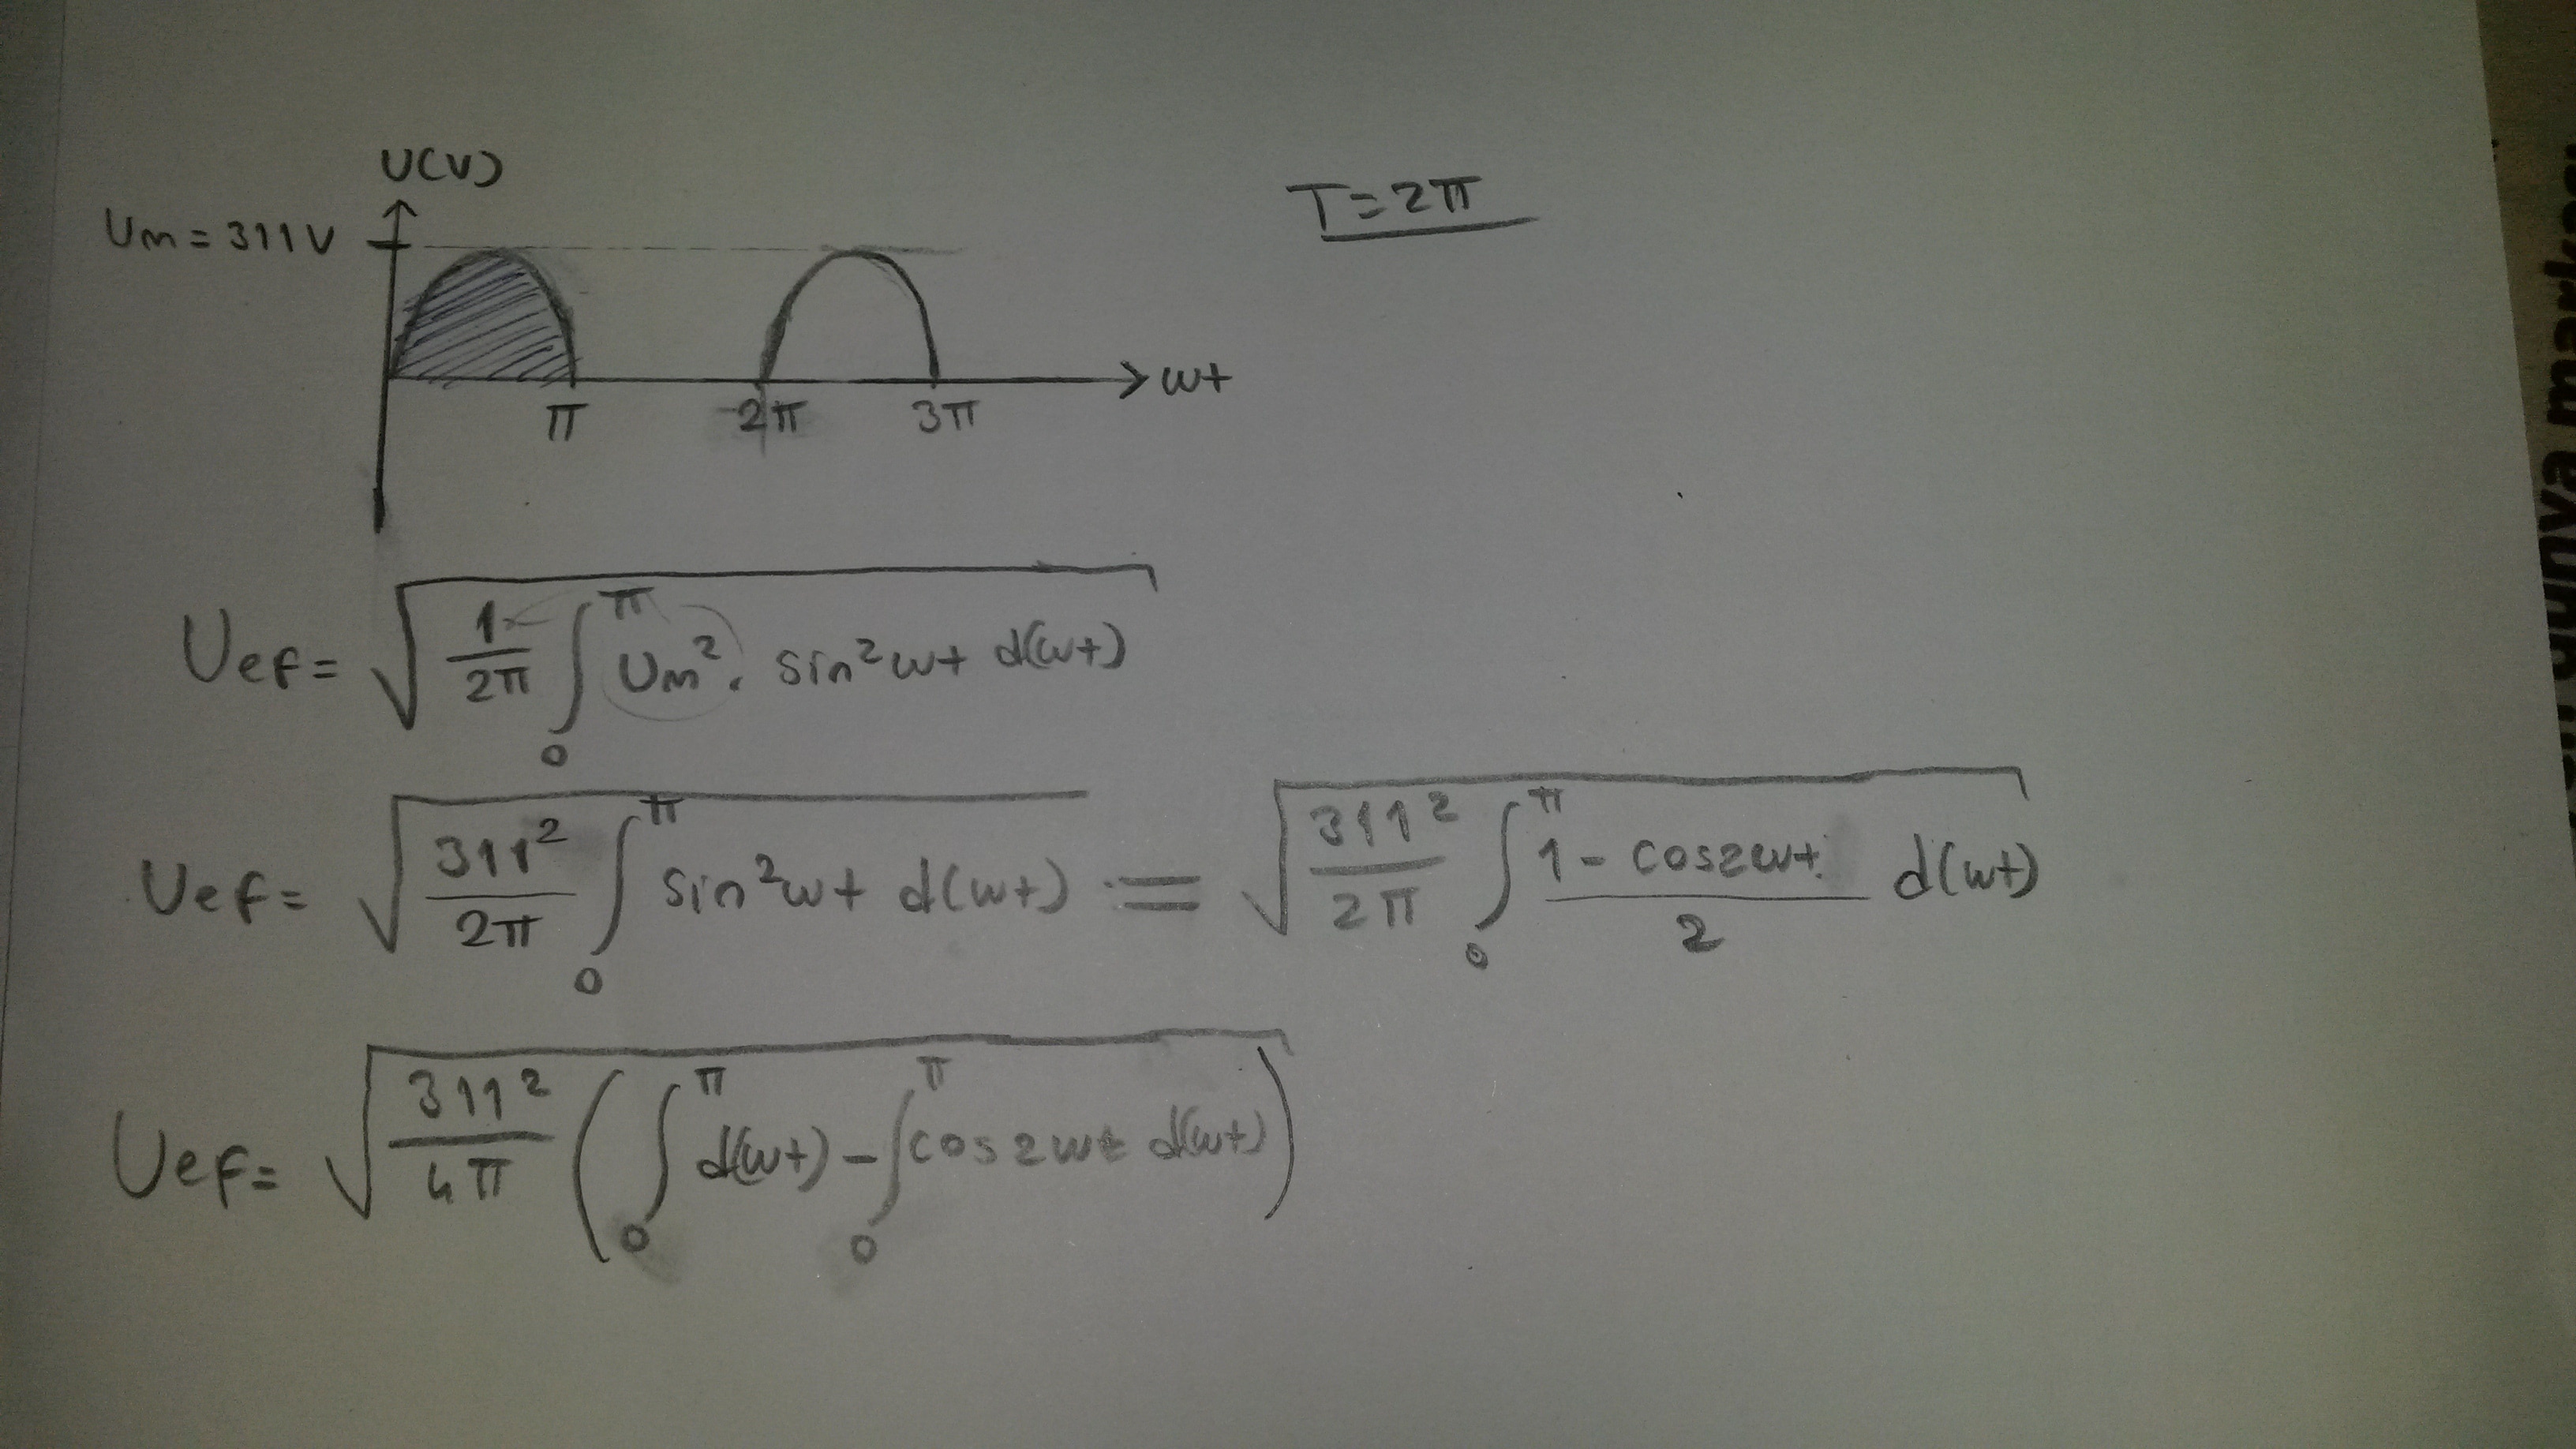 U(V)
Um = 311V
T = 2π
π 2π 3π → ωt
Uef = √( 1/2π ∫₀^π Um² . sin²ωt d(ωt) )
Uef = √( 311²/2π ∫₀^π sin²ωt d(ωt) ) = √( 311²/2π ∫₀^π (1 - cos2ωt)/2 d(ωt) )
Uef = √( 311²/4π ( ∫₀^π d(ωt) - ∫₀^π cos2ωt d(ωt) ) )